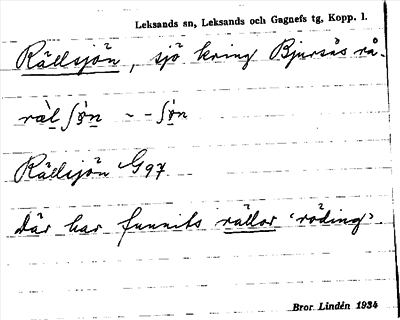 Leksands sn, Leksands och Gagnefs tg, Kopp. l.
Rällsjön, sjö kring Bjursås rå.
Rällsjön G97
där har funnits rällor 'röding'.
Bror Lindén 1934